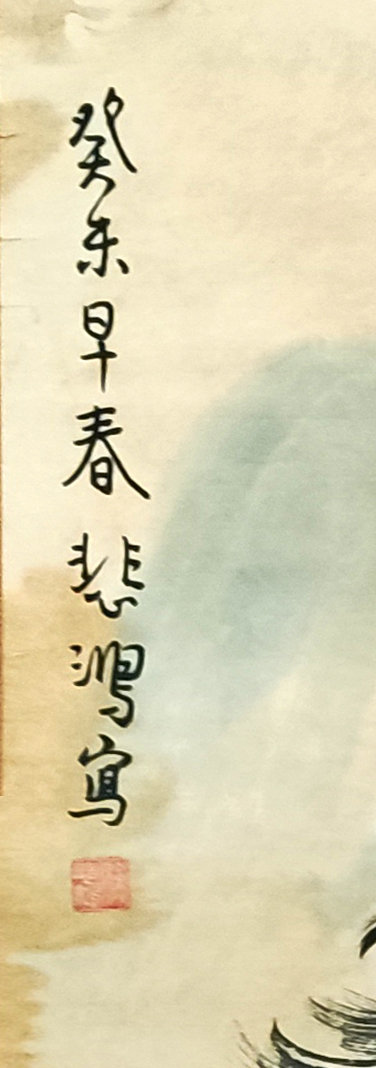 癸未早春悲鴻寫